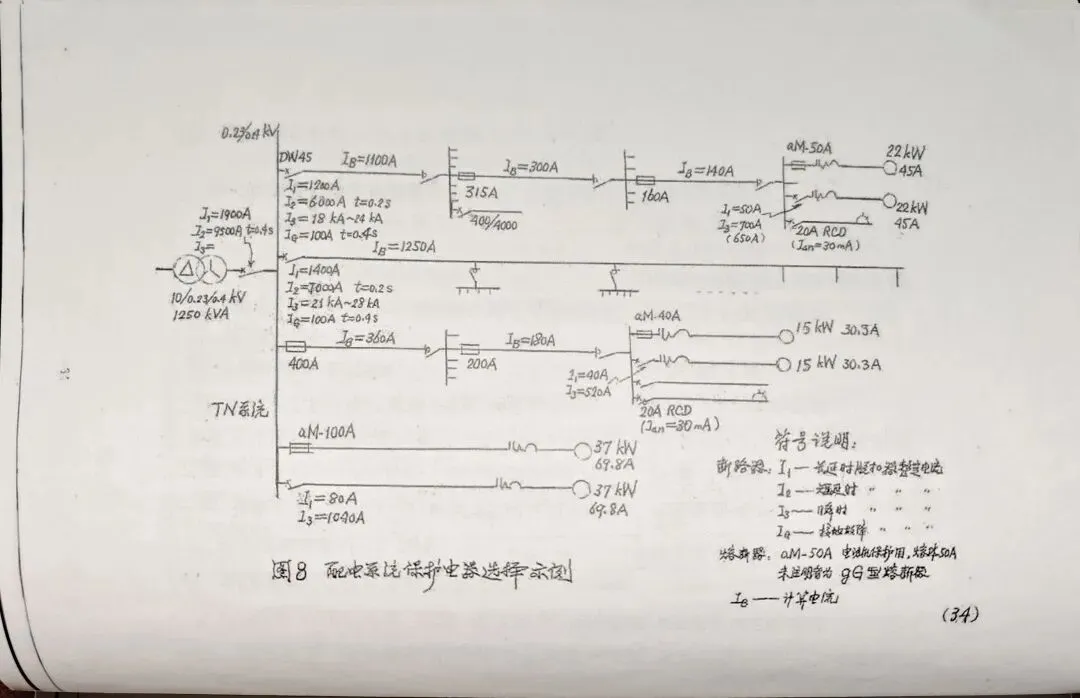 0.23/0.4 kV
DW45
I_B=1100A
I_B=300A
I_B=140A
aM-50A
22kW
45A
I₁=1200A
I₂=6000A t=0.2s
I₃=18 kA~24 kA
I_G=100A t=0.4s
315A
400/4000
160A
I₁=50A
I₃=700A
(650A)
22kW
45A
20A RCD
(I_Δn=30mA)
I₁=1900A
I₂=9500A t=0.4s
I₃=
I_B=1250A
I₁=1400A
I₂=7000A t=0.2s
I₃=21 kA~28 kA
I_G=100A t=0.4s
10/0.23/0.4 kV
1250 kVA
I_B=360A
400A
I_B=180A
200A
aM-40A
15 kW 30.3A
15 kW 30.3A
I₁=40A
I₃=520A
20A RCD
(I_Δn=30mA)
TN系统
aM-100A
37 kW
69.8A
I₁=80A
I₃=1040A
37 kW
69.8A
符号说明:
断路器: I₁— 长延时脱扣器整定电流
I₂— 短延时 〃 〃 〃
I₃— 瞬时 〃 〃 〃
I_G— 接地故障 〃 〃 〃
熔断器: aM-50A 电动机保护用,熔体50A
未注明者为 gG型熔断器
I_B——计算电流
图8 配电系统保护电器选择示例
(34)